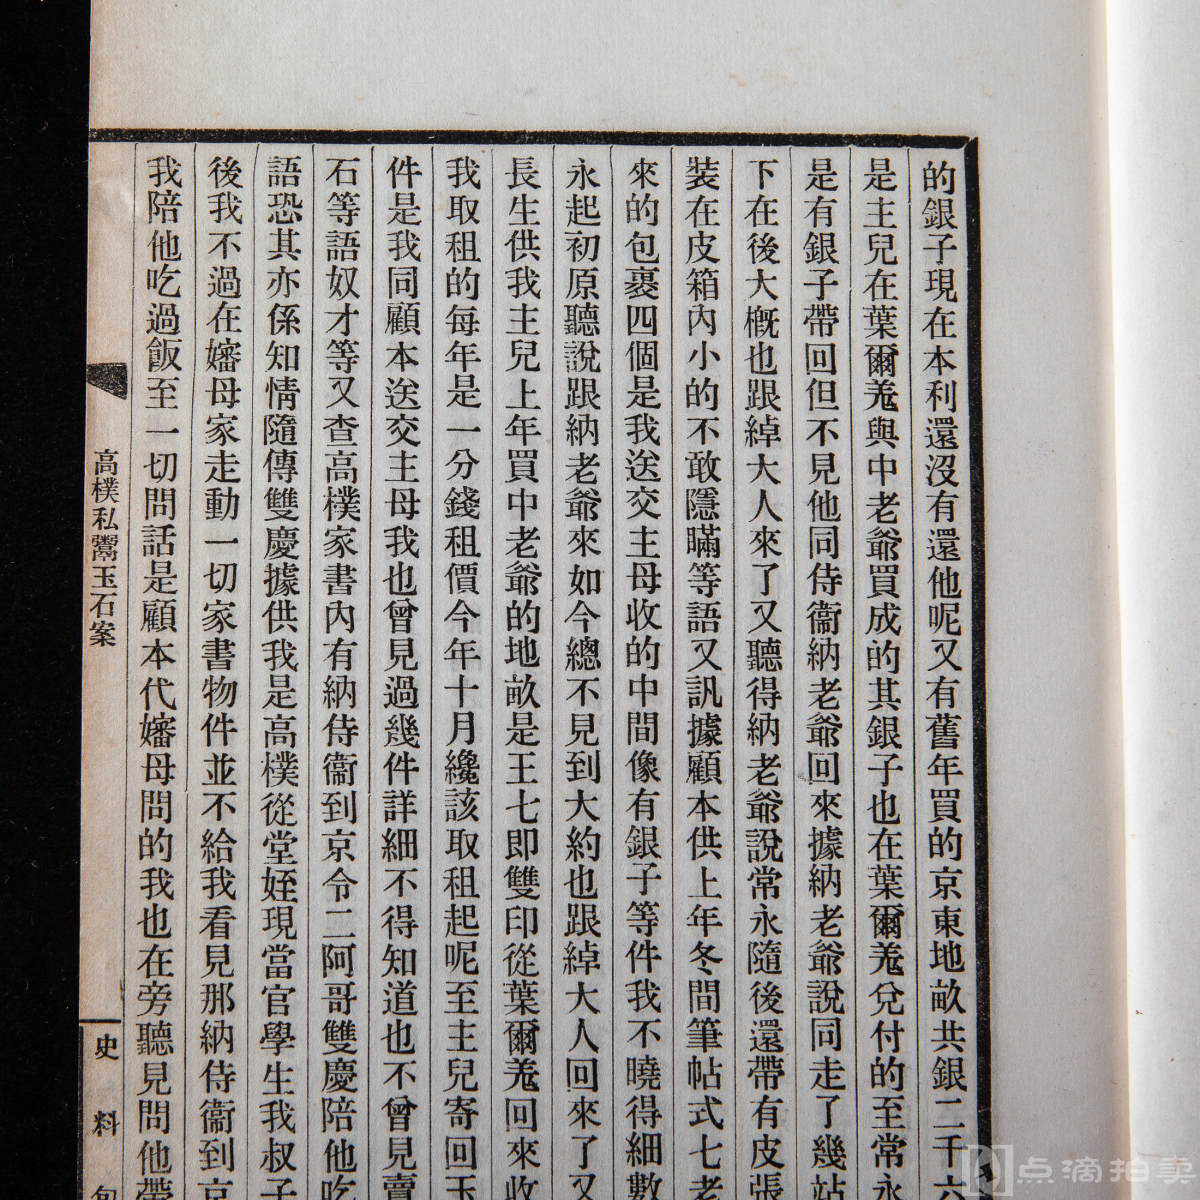 的銀子現在本利還沒有還他呢又有舊年買的京東地畝共銀二千六
是主兒在葉爾羌與中老爺買成的其銀子也在葉爾羌兌付的至常永
是有銀子帶回但不見他同侍衞納老爺回來據納老爺說同走了幾站
下在後大概也跟綽大人來了又聽得納老爺說常永隨後還帶有皮張
裝在皮箱內小的不敢隱瞞等語又訊據顧本供上年冬間筆帖式七老
來的包裹四個是我送交主母收的中間像有銀子等件我不曉得細數
永起初原聽說跟納老爺來如今總不見到大約也跟綽大人回來了又
長生供我主兒上年買中老爺的地畝是王七即雙印從葉爾羌回來收
我取租的每年是一分錢租價今年十月纔該取租起呢至主兒寄回玉
件是我同顧本送交主母我也曾見過幾件詳細不得知道也不曾見賣
石等語奴才等又查高樸家書內有納侍衞到京令二阿哥雙慶陪他吃
語恐其亦係知情隨傳雙慶據供我是高樸從堂姪現當官學生我叔子
後我不過在嬸母家走動一切家書物件並不給我看見那納侍衞到京
我陪他吃過飯至一切問話是顧本代嬸母問的我也在旁聽見問他帶
高樸私鬻玉石案
史料旬
点滴拍卖